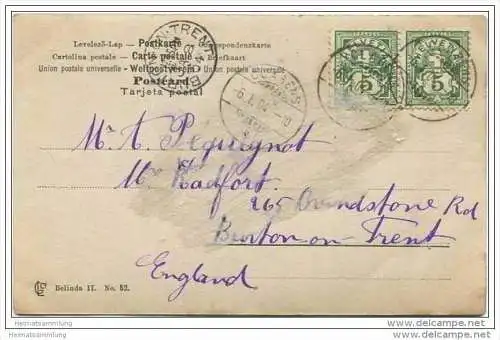 Levelező-Lap — Postkarte — Correspondenzkarte
Cartolina postale — Carte postale — Briefkaart
Union postale universelle — Weltpostverein — Union postale universelle
Postcard
Tarjeta postal
5 5
6.I.04.-10
Mr. A. Péquignot
Mr Radfort.
265 Ovindstone Rd
Burton-on-Trent
England
Belinda II. No. 52.
Heimatsammlung
Heimatsammlung